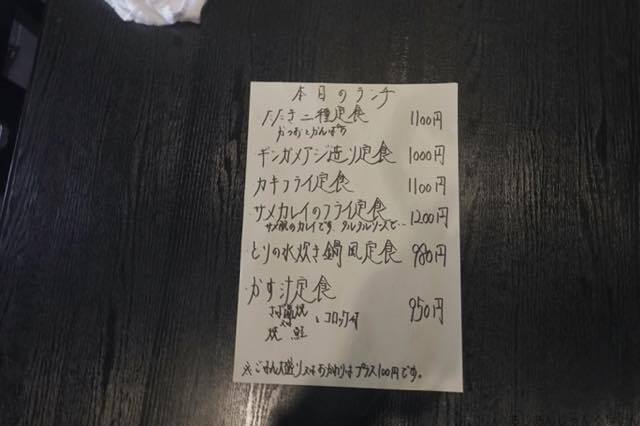 本日のランチ
たたき二種定食 1100円
かつおとかんぱち
ギンガメアジ造り定食 1000円
カキフライ定食 1100円
サメカレイのフライ定食 1200円
サメ肌のカレイです、タルタルソースで…
とりの水炊き鍋風定食 980円
かす汁定食 950円
さば塩焼 又は 焼鮭 、コロッケ付
※ごはん大盛り又はおかわりはプラス100円です。